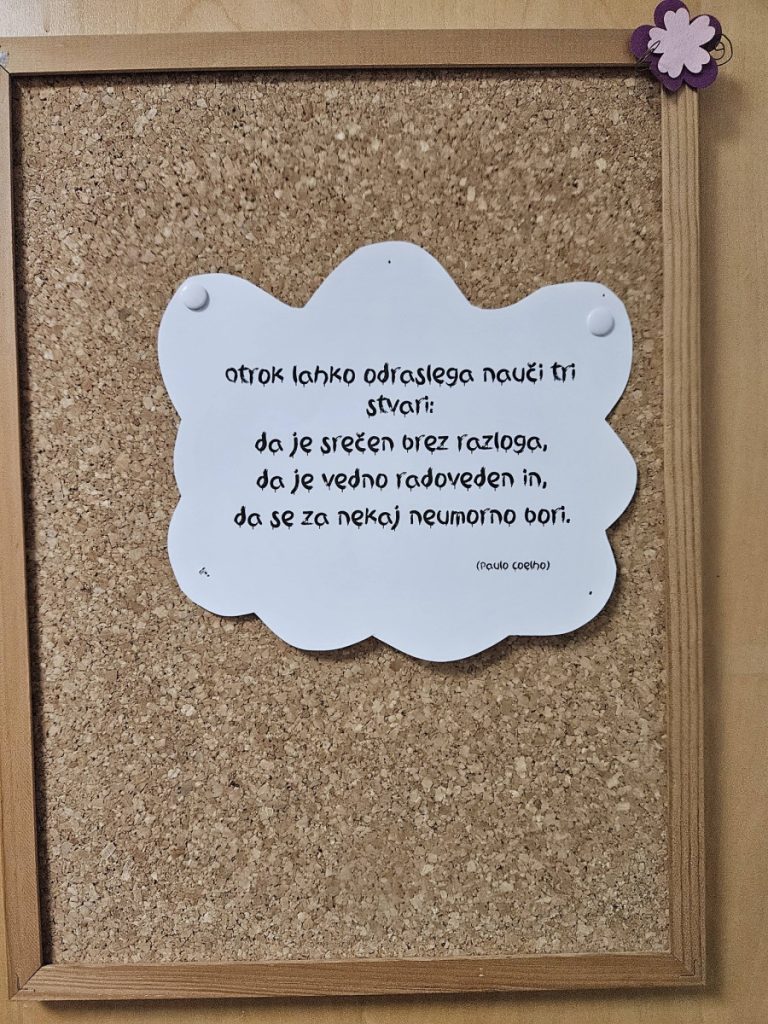 otrok lahko odraslega nauči tri
stvari:
da je srečen brez razloga,
da je vedno radoveden in,
da se za nekaj neumorno bori.
(Paulo Coelho)